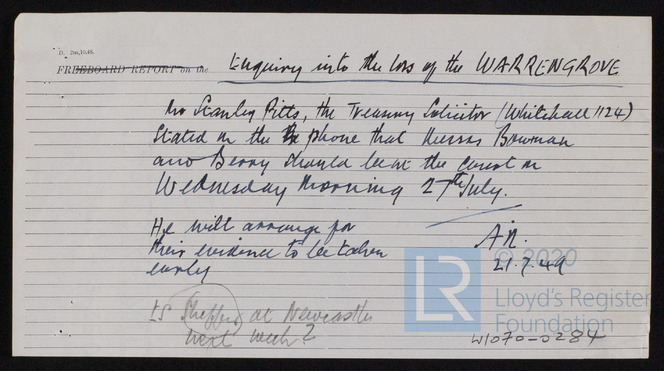 D. 2m,10,48.
FREEBOARD REPORT on the Enquiry into the loss of the WARRENGROVE
Mr Stanley Pitts, the Treasury Solicitor (Whitehall 1124)
stated on the phone that Messrs Bowman
and Berry should be at the court on
Wednesday morning 27th July.
He will arrange for
their evidence to be taken
early
A.N.
21.7.49
Is Shepherd at Newcastle
next week?
© 2020
LR
Lloyd's Register
Foundation
W1070-0284